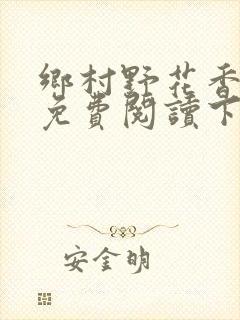 鄉村野花香
免費閱讀下
安金明